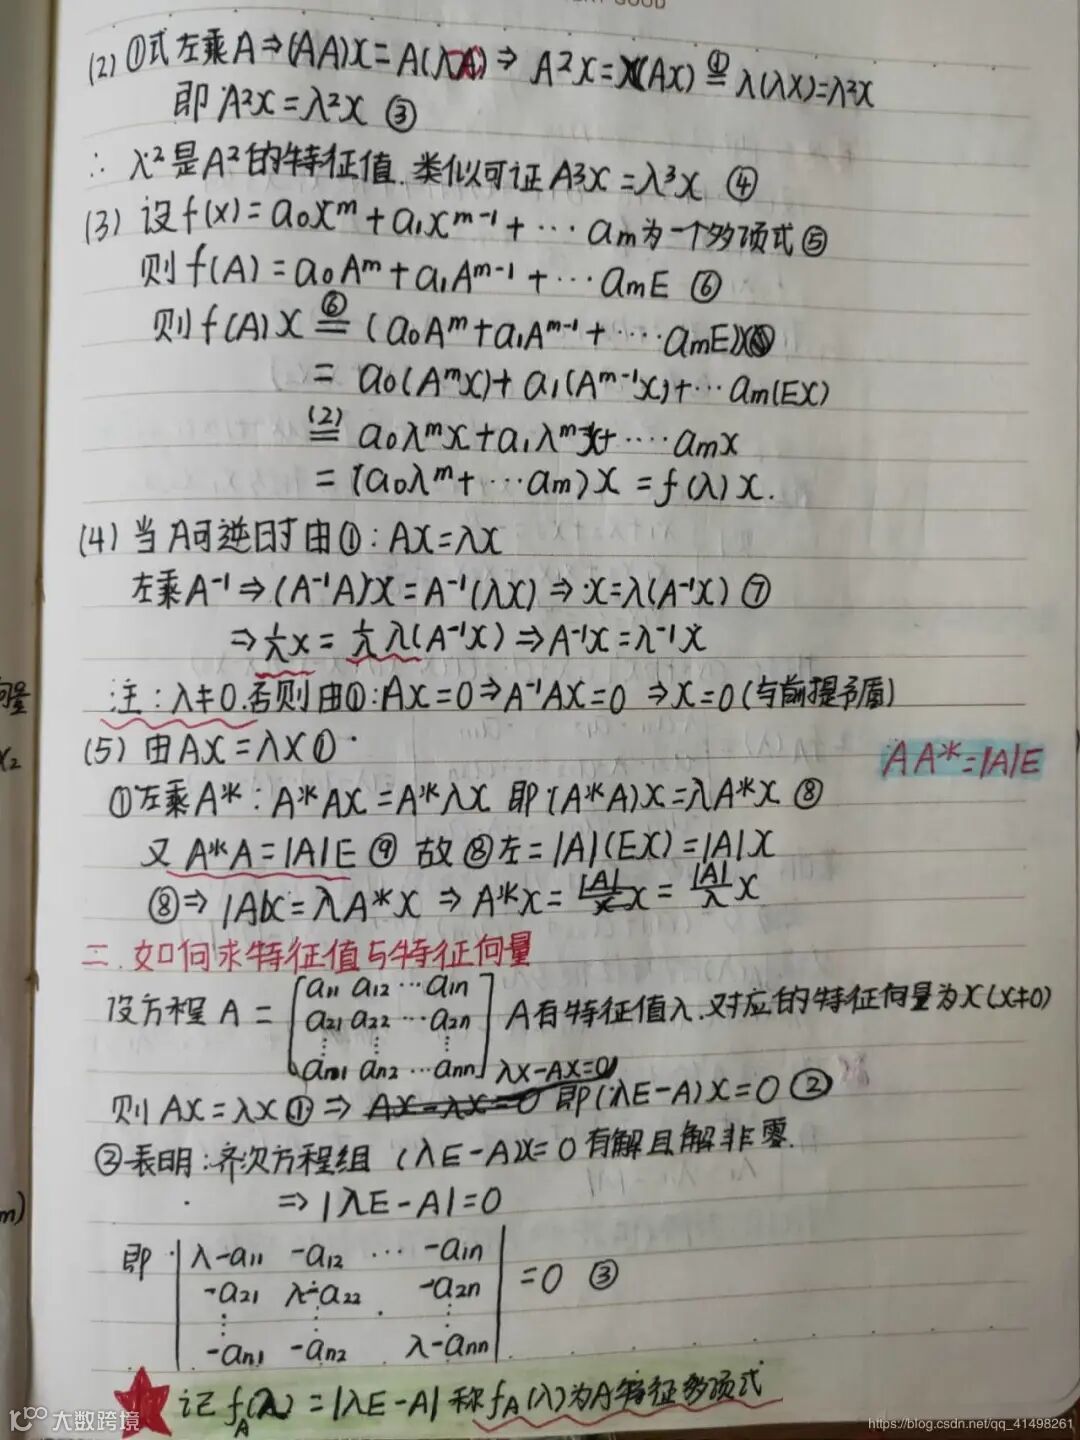 (2) ①式左乘A⇒(AA)X=A(λX)⇒ A²X=λ(AX) ①= λ(λX)=λ²X
即 A²X=λ²X ③
∴ λ²是A²的特征值. 类似可证 A³X=λ³X ④
(3) 设 f(x)=a₀xᵐ+a₁xᵐ⁻¹+…aₘ为一个多项式⑤
则 f(A)=a₀Aᵐ+a₁Aᵐ⁻¹+…aₘE ⑥
则 f(A)X ⑥= (a₀Aᵐ+a₁Aᵐ⁻¹+……aₘE)X
= a₀(AᵐX)+a₁(Aᵐ⁻¹X)+…aₘ(EX)
(2)= a₀λᵐX+a₁λᵐ⁻¹X+……aₘX
=(a₀λᵐ+…aₘ)X=f(λ)X.
(4) 当A可逆时由①:AX=λX
左乘A⁻¹⇒(A⁻¹A)X=A⁻¹(λX)⇒X=λ(A⁻¹X)⑦
⇒1/λ X=1/λ λ(A⁻¹X)⇒A⁻¹X=λ⁻¹X
注:λ≠0.否则由①:AX=0⇒A⁻¹AX=0 ⇒X=0(与前提矛盾)
(5) 由AX=λX①
AA*=|A|E
①左乘A*:A*AX=A*λX 即(A*A)X=λA*X ⑧
又 A*A=|A|E ⑨ 故⑧左=|A|(EX)=|A|X
⑧⇒|A|X=λA*X ⇒A*X=|A|/λ X
二.如何求特征值与特征向量
设方程 A= [a₁₁ a₁₂ … a₁ₙ
a₂₁ a₂₂ … a₂ₙ
⋮ ⋮ ⋮
aₙ₁ aₙ₂ … aₙₙ] A有特征值λ.对应的特征向量为X(X≠0)
λX-AX=0
则 AX=λX①⇒ AX-λX=0 即(λE-A)X=0②
②表明:齐次方程组 (λE-A)X=0有解且解非零.
⇒|λE-A|=0
即 |λ-a₁₁ -a₁₂ … -a₁ₙ|
|-a₂₁ λ-a₂₂ -a₂ₙ| =0 ③
⋮ ⋮ ⋮
|-aₙ₁ -aₙ₂ λ-aₙₙ|
记 f_A(λ)=|λE-A|称f_A(λ)为A特征多项式
大数跨境
https://blog.csdn.net/qq_41498261